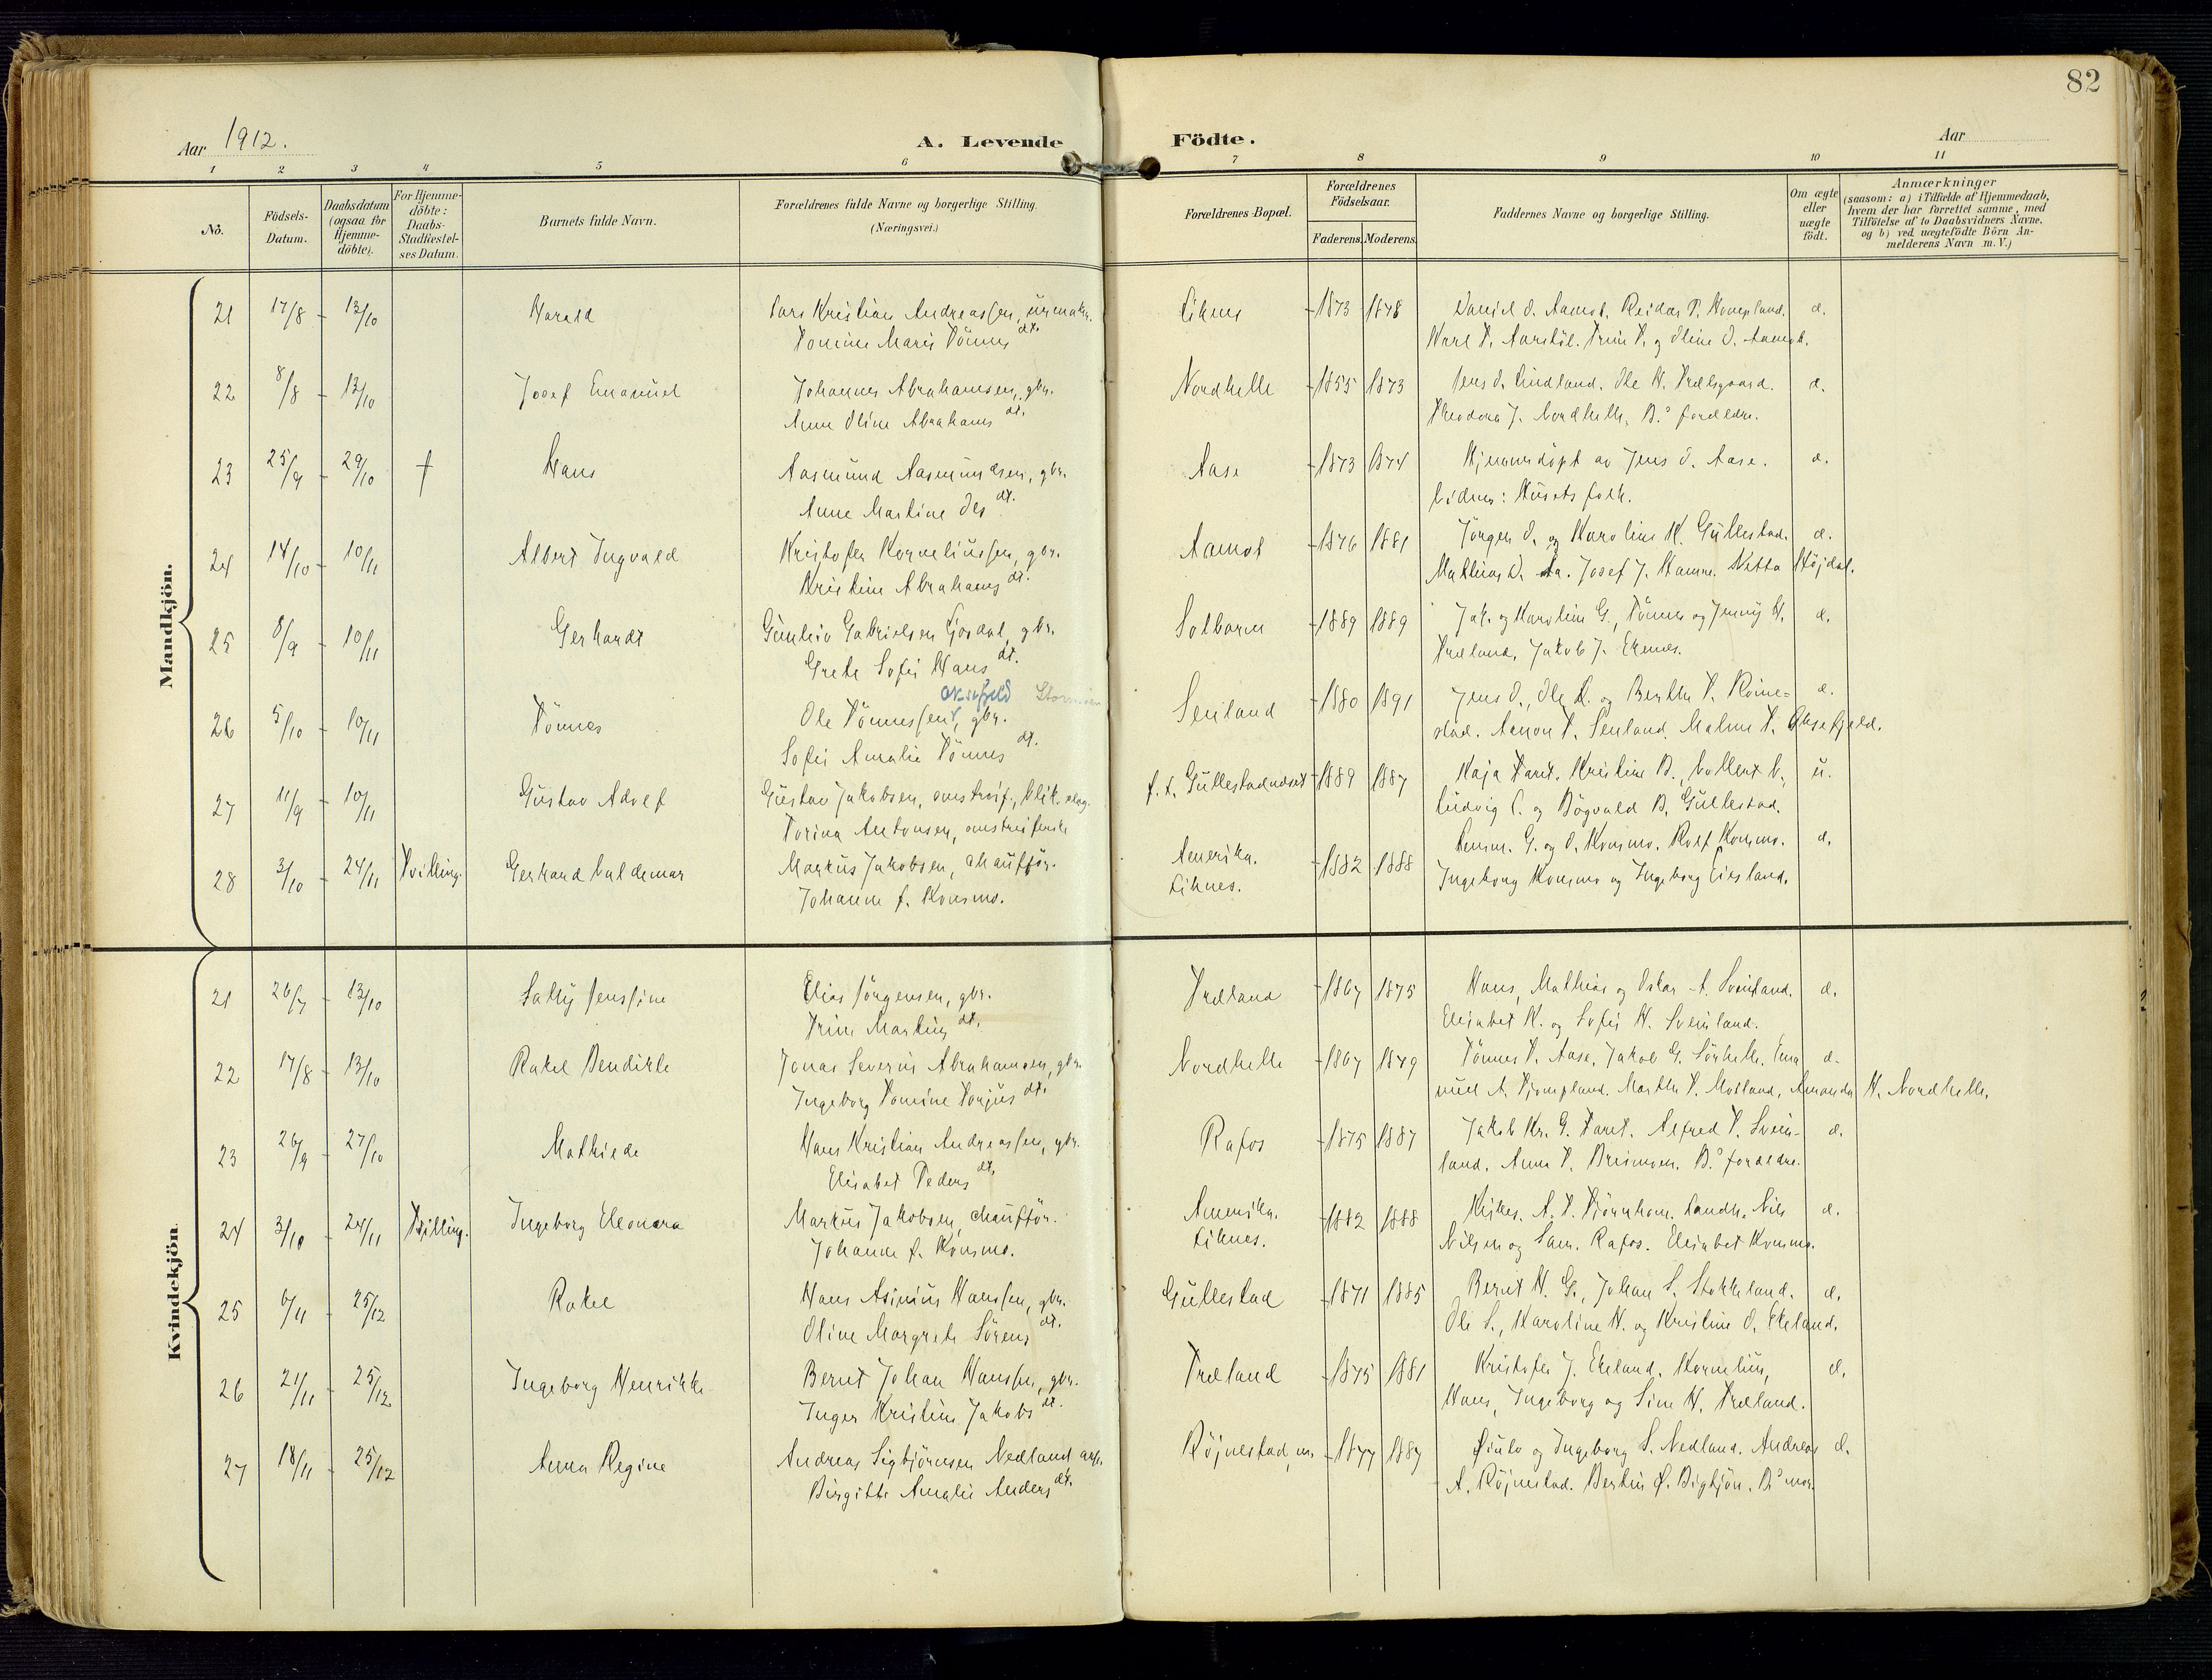 82
Aar 1912.
A. Levende Födte.
Aar
1 2 3 4 5 6 7 8 9 10 11
No.
Födsels-Datum.
Daabsdatum (ogsaa for Hjemme-döbte).
For Hjemme-döbte: Daabs-Stadfæstel-ses Datum.
Barnets fulde Navn.
Forældrenes fulde Navne og borgerlige Stilling. (Næringsvei.)
Forældrenes Bopæl.
Forældrenes Födselsaar.
Faderens. Moderens.
Faddernes Navne og borgerlige Stilling.
Om ægte eller uægte födt.
Anmærkninger
(saasom: a) i Tilfælde af Hjemmedaab, hvem der har forrettet samme, med Tilföielse af to Daabsvidners Navne. og b) ved uægtefödte Börn An-melderens Navn m. V.)
Mandkjön.
21 17/8 - 13/10 Harald Lars Kristian Andreassen, urmaker. Liknes - 1873 1878 Daniel O. Aamot. Reidar P. æ.
Tomine Marie Tönnes dt. Trine T. og Oline O. Aamot.
22 8/8 - 13/10 Josef Emanuel Johannes Abrahamsen, gbr. Nordhelle - 1855 1873 Jens O. Lindland. Ole H. Trælsgaard. æ.
Anne Oline Abrahams dt. Theodora J. Nordhelle, B.s forældre.
23 25/9 - 29/10 † Hans Aasmund Aasmundsen, gbr. Aase - 1873 1874 Hjemmedöpt av Jens O. Aase. æ.
Anne Martine Ols dt. Vidner: Husets folk.
24 14/10 - 10/11 Albert Ingvald Kristofer Korneliussen, gbr. Aamot - 1876 1881 Jörgen O. og Karoline K. Gullestad. æ.
Kristine Abrahams dt. Mathias O. Aa. Josef J. Hamre. Netta Höjdal.
25 8/9 - 10/11 Gerhardt Gunleiv Gabrielsen Gjosdal, gbr. Solbarm - 1889 1889 Jak. og Karoline G., Tönnes og Jenny H. æ.
Grete Sofie Hans dt. Træland, Jakob J. Ekenes.
Oksefjeld
26 5/10 - 10/11 Tönnes Ole Tönnessen, gbr. Senland - 1880 1891 Jens O., Ole L. og Berthe T. Röine- æ.
Sofie Amalie Tönnes dt. stad. Aanon T. Senland. Malene T. Oksefjeld.
27 11/9 - 10/11 Gustav Adolf Gustav Jakobsen, omstreif., blik.slag. f. t. Gullestadmoset - 1889 1887 Kaja Taret. Kristine B., Vollert V., u.
Torina Antonsen, omstreiferske Ludvig L. og Bögvald B. Gullestad.
28 3/10 - 24/11 Tvilling. Gerhard Valdemar Markus Jakobsen, chaufför. Amerika. - 1882 1888 G. og O. Konsmo. Rolf Konsmo. æ.
Johanne f. Konsmo. Liknes. Ingeborg Konsmo og Ingeborg Eiesland.
Kvindekjön
21 26/7 - 13/10 Sally Jenssine Elias Jörgensen, gbr. Træland - 1867 1875 Hans, Mathias og Oskar A. Sveinland. æ.
Trine Martins dt. Elisabet K. og Sofie H. Sveinland.
22 17/8 - 13/10 Rakel Bendikte Jonas Severin Abrahamsen, gbr. Nordhelle - 1867 1879 Tönnes T. Aase. Jakob G. Sörhelle. Ema æ.
Ingeborg Tomine Torjus dt. nuel A. Tjompland. Marthe T. Motland, Amanda H. Nordhelle.
23 26/9 - 27/10 Mathilde Hans Kristian Andreassen, gbr. Rafos - 1875 1887 Jakob Kr. G. Taret. Alfred T. Svein- æ.
Elisabet Peders dt. land. Anne T. Breimoen. B.s forældre.
24 3/10 - 24/11 Tvilling. Ingeborg Eleonora Markus Jakobsen, chaufför. Amerika. - 1882 1888 Kirkes. A. T. Björnhom. Landh. Nils æ.
Johanne f. Konsmo. Liknes. Nilsen og Sam. Rafos. Elisabet Konsmo.
25 6/11 25/12 Rakel Hans Asinius Hanssen, gbr. Gullestad - 1871 1885 Berut H. G., Johan S. Stokkeland. æ.
Oline Margrete Sörens dt. Ole S., Karoline H. og Kristine O. Ekeland.
26 21/11 25/12 Ingeborg Henrikke Bernt Johan Hanssen, gbr. Træland - 1875 1881 Kristofer J. Ekeland. Kornelius, æ.
Inger Kristine Jakobs dt. Hans, Ingeborg og Sine H. Træland.
27 18/11 - 25/12 Anna Regine Andreas Sigbjörnsen Nedland, arb. Röjnestad, m. - 1877 1887 Öiulv og Ingeborg S. Nedland. Andreas æ.
Birgitte Amalie Anders dt. A. Röjnestad. Bertine Ö. Bigtjön. B.s mor.